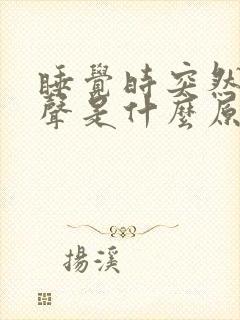 睡覺時突然
聲是什麼原
揚溪